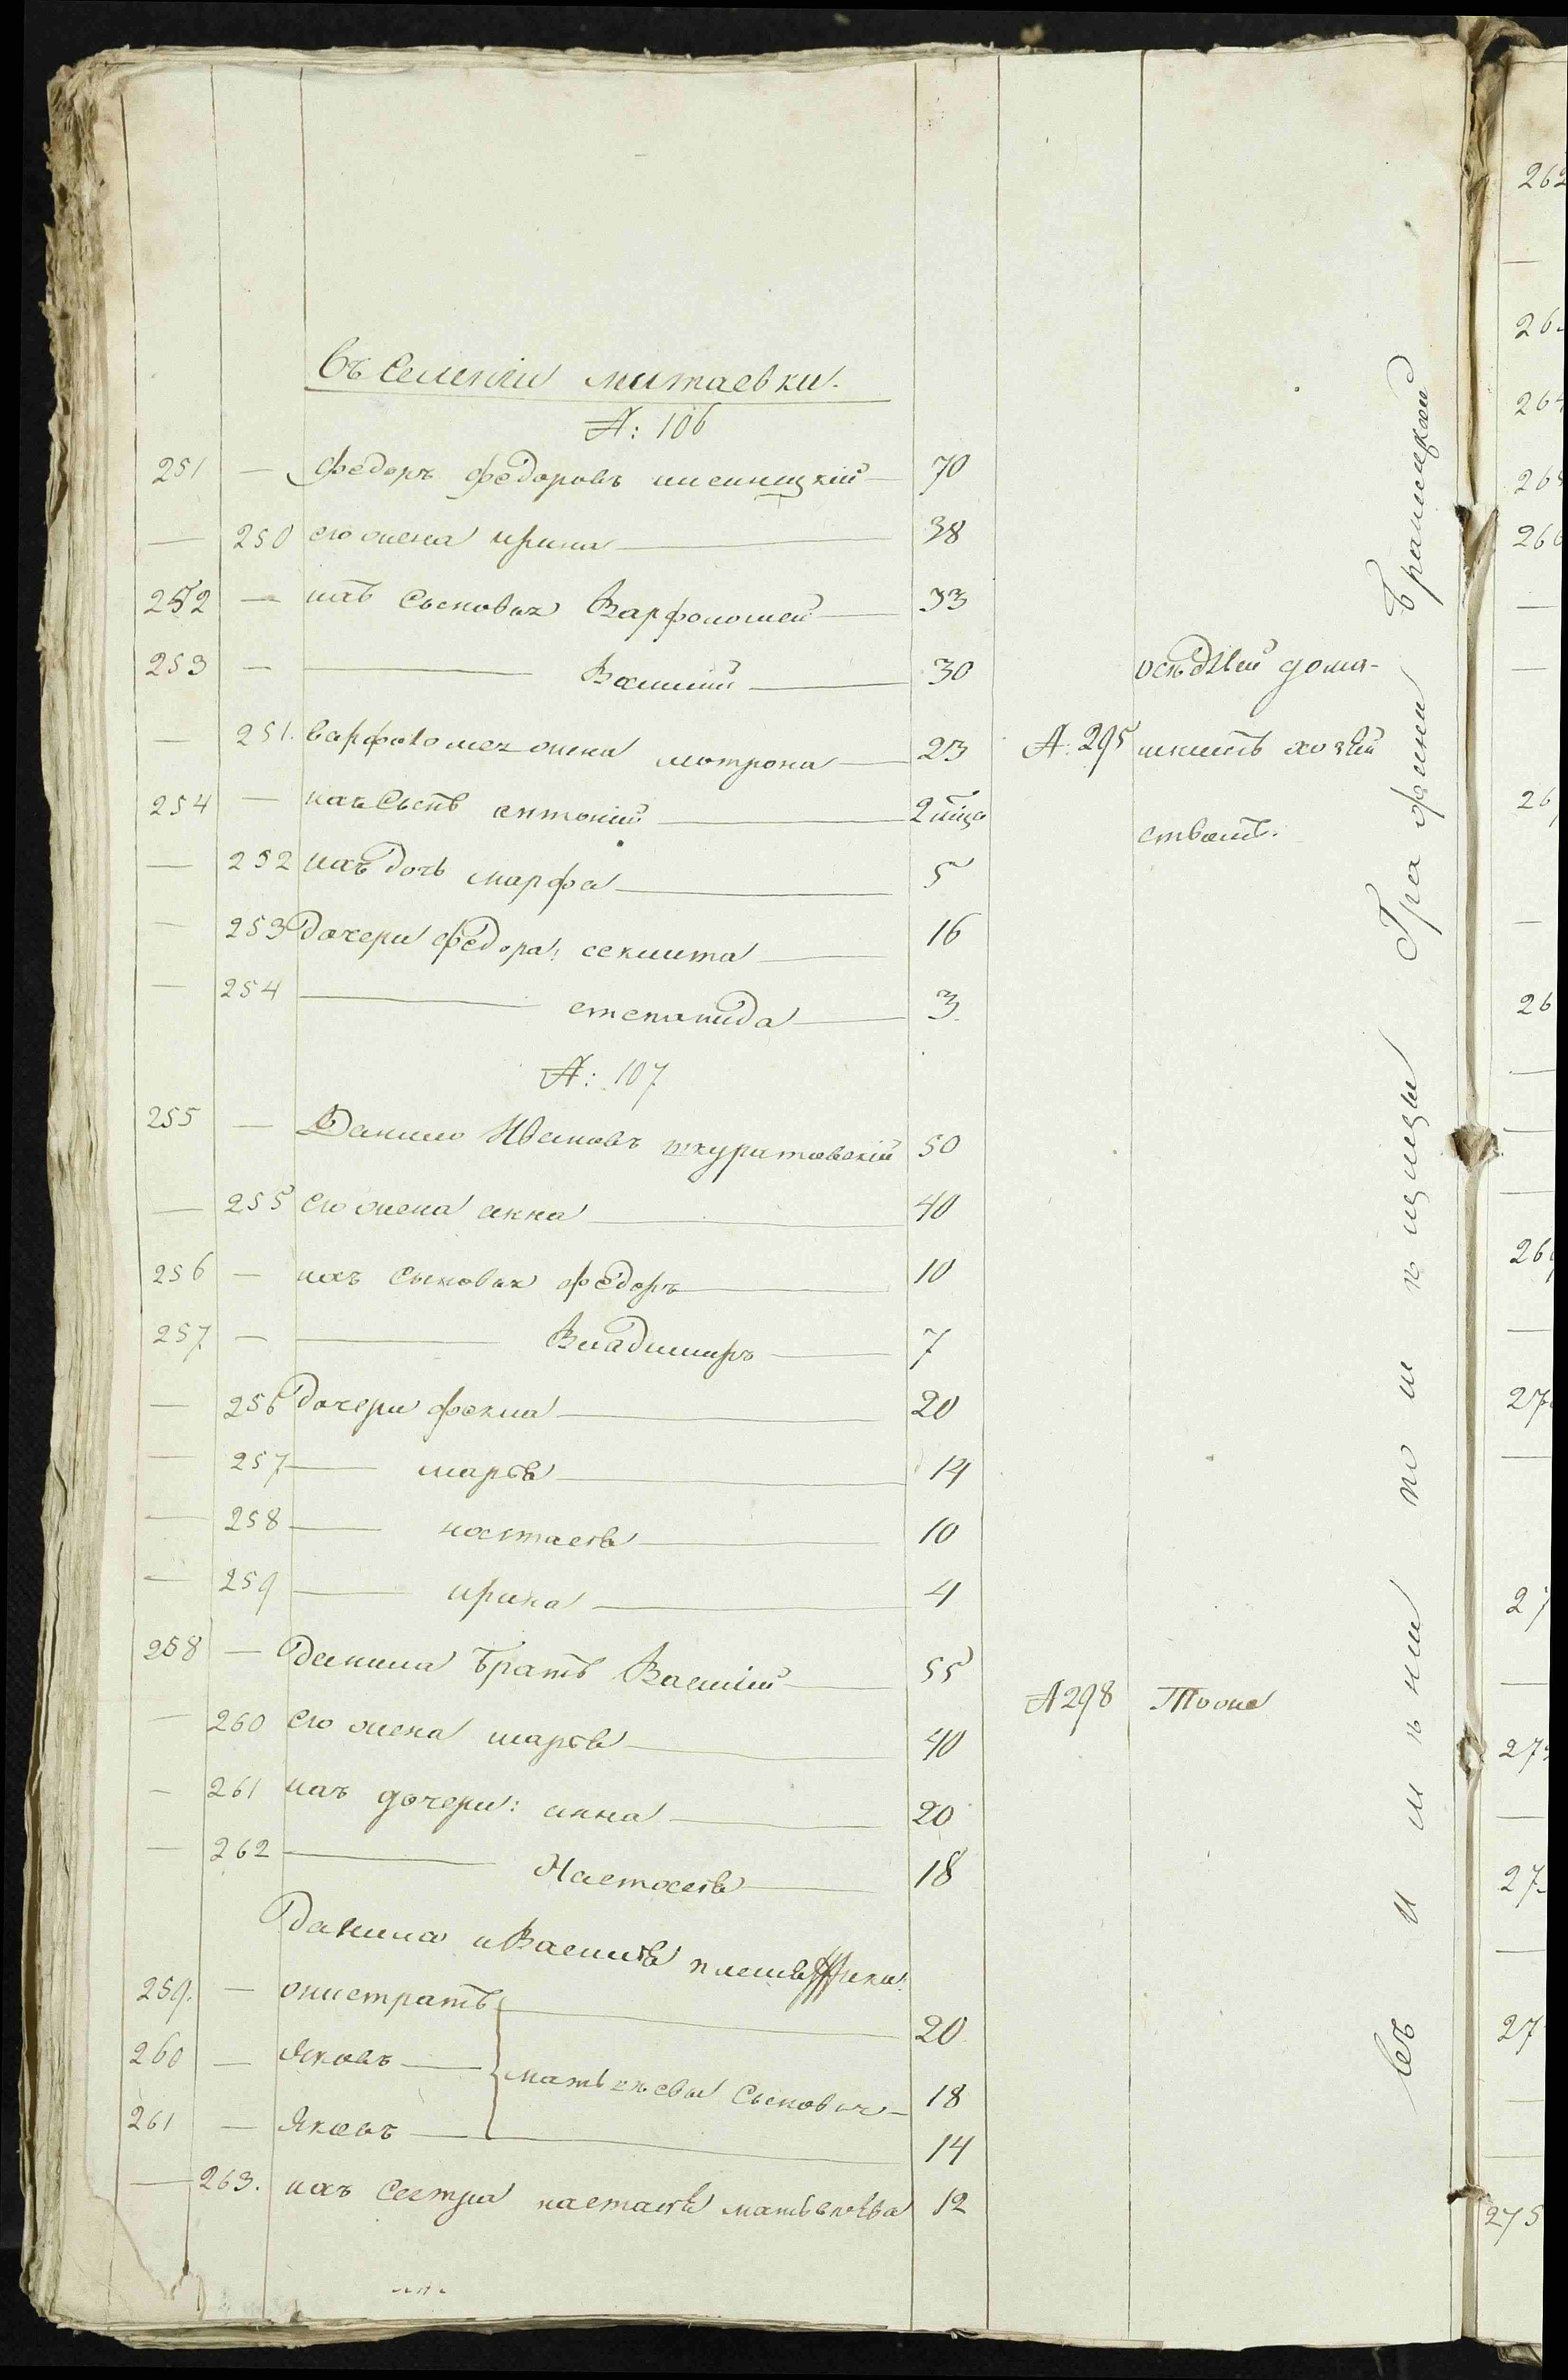 Въ Селеніи митаевки.
№: 106
251 — федоръ федоровъ 70
— 250 его жена ирина — 38
252 — ихъ Сыновья Варфоломей — 33
253 — — Василій — 30
— 251. варфоломея жена мотрона — 23
254 — ихъ Сынъ антоній — 2
— 252 ихъ дочь марфа — 5
— 253 дочери федора: секлита — 16
— 254 — степанида — 3
№: 107
255 — Данило Ивановъ шкуратовскій 50
— 255 его жена анна — 40
256 — ихъ Сыновья федоръ — 10
257 — — Владимиръ — 7
— 256 дочери фекла — 20
— 257 — марья — 14
— 258 — настасья — 10
— 259 — ирина — 4
258 — данила братъ Василій — 55
— 260 его жена марья — 40
— 261 ихъ дочери: анна — 20
— 262 — Настасья — 18
Данила и Василья племянники
259. — онистратъ — 20
260 — Яковъ — матвѣевы Сыновья — 18
261 — Яковъ — 14
— 263. ихъ Сестра настасья матвѣева 12
осѣдлой дома-
№. 295 шнимъ хозяй
ствомъ.
№ 298 Тоже
въ имѣніи помѣщицы Графини Браницкой
262
264
266
269
275